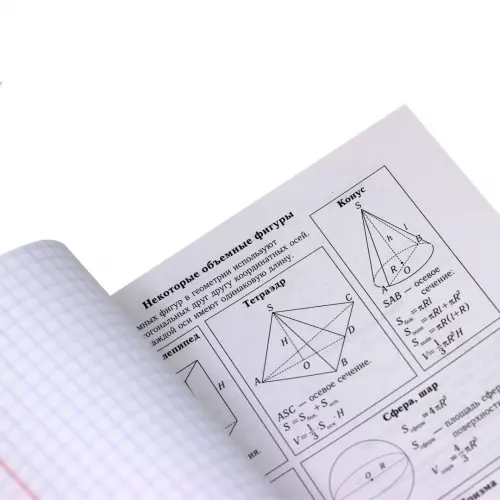 Некоторые объемные фигуры
мных фигур в геометрии используют
огональных друг другу координатных осей.
аждой оси имеют одинаковую длину.
лепипед
H
ия.
Тетраэдр
S
C
H
D
O
A
B
ASC — осевое сечение.
S = Sбок + Sосн
V = 1/3 Sосн · H
Конус
S
h
l
R
B
A
O
SAB — осевое
сечение:
Sбок = πRl
= πRl + πR²
= πR(l+R)
V = 1/3 πR²H
Сфера, шар
Sсферы = 4πR²
Sсферы — площадь сфер
поверхности
V = 4/3 πR³
O
R
ризма